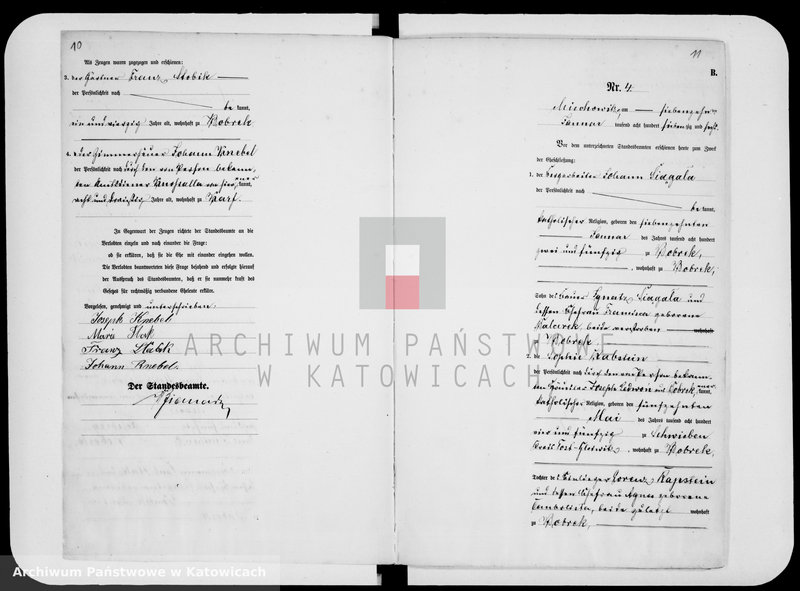 10
Als Zeugen waren zugezogen und erschienen:
3. der Gärtner Franz Slabik
der Persönlichkeit nach
be kannt,
ein und vierzig Jahre alt, wohnhaft zu Bobrek
4. der Zimmerhäuer Johann Knebel
der Persönlichkeit nach durch den von Person bekann-
ten Amtsdiener von hier kannt,
acht und dreißig Jahre alt, wohnhaft zu Karf.
In Gegenwart der Zeugen richtete der Standesbeamte an die
Verlobten einzeln und nach einander die Frage:
ob sie erklären, daß sie die Ehe mit einander eingehen wollen.
Die Verlobten beantworteten diese Frage bejahend und erfolgte hierauf
der Ausspruch des Standesbeamten, daß er sie nunmehr kraft des
Gesetzes für rechtmäßig verbundene Eheleute erkläre.
Vorgelesen, genehmigt und unterschrieben:
Joseph Knebel
Marie
Franz Slabik
Johann Knebel.
Der Standesbeamte.
11
B.
Nr. 4
Miechowitz, am siebenzehn
Januar tausend acht hundert siebenzig und sechs.
Vor dem unterzeichneten Standesbeamten erschienen heute zum Zweck
der Eheschließung:
1. der Bergarbeiter Johann Siagala
der Persönlichkeit nach
be kannt,
katholischer Religion, geboren den siebenzehnten
Januar des Jahres tausend acht hundert
zwei und fünfzig zu Bobrek,
, wohnhaft zu Bobrek,
Sohn des Bauer Ignatz Siagala und
dessen Ehefrau Franziska geborene
beide verstorben wohnhaft
zu Bobrek
2. die Sophie Rabstein
der Persönlichkeit nach durch den von Person bekann-
ten Häusler Joseph aus Bobrek, kannt,
katholischer Religion, geboren den fünfzehnten
Mai des Jahres tausend acht hundert
vier und fünfzig zu Schwieben
Kreis Tost-Gleiwitz, wohnhaft zu Bobrek,
Tochter des Einlieger Lorenz Rapstein
und dessen Ehefrau Agnes geborene
beide zuletzt wohnhaft
zu Bobrek,
ARCHIWUM PAŃSTWOWE
W KATOWICACH
Archiwum Państwowe w Katowicach